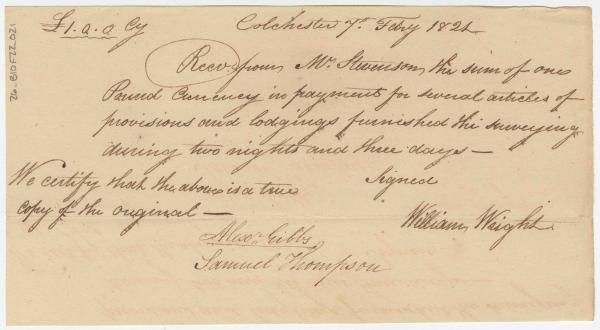 £1.a.a Cy
Colchester 7th Febry 1821
Recd from Mr Stevenson, the sum of one
Pound Currency in payment for several articles of
provisions and lodgings furnished the surveying
during two nights and three days—
We certify that the above is a true
copy of the original—
Signed
William Wright
Alexr Gibbs
Samuel Thompson